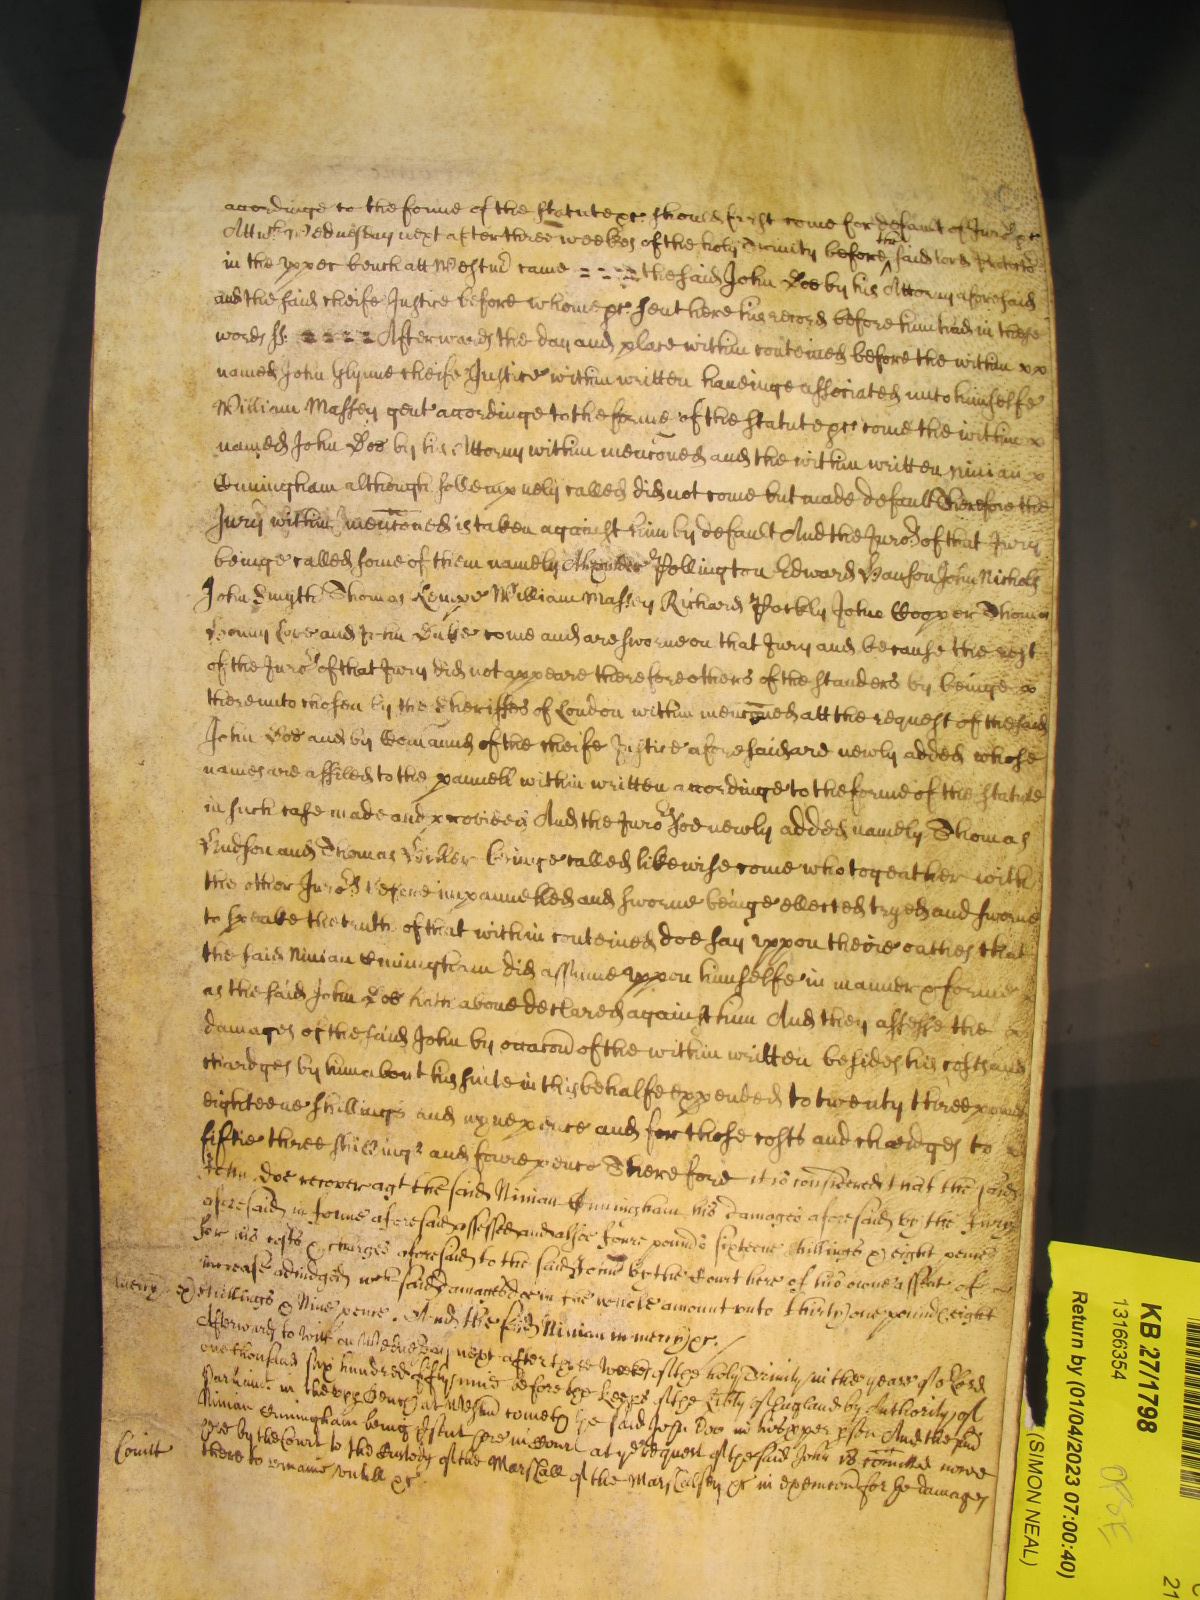 accordinge to the forme of the statute &c should first come for default of Jurors &c
Att wch Wednesday next after three weekes of the holy Trinity before the said lord Protector
in the vpper bench att Westm came the said John Doe by his Attorny aforesaid
and the said cheife Justice before whome &c sent here his record before him had in these
words ss. Afterwards the day and place within conteined before the within
named John Glynne cheife Justice within written haueinge associated unto himselfe
William Massey gent accordinge to the forme of the statute &c come the within
named John Doe by his Attorny within menconed and the within written Ninian
Cunningham although sollempnely called did not come but made default Therefore the
Jury within menconed is taken against him by default And the Juros of that Jury
beinge called some of them namely Pollington Edward Hanson John Nichols
John Smyth Thomas Kempe William Massey Richard John Cooper Thomas
and John come and are sworne on that Jury and because the rest
of the Juros of that Jury did not appeare therefore others of the standers by beinge
thereunto chosen by the Sheriffes of London within menconed att the request of the said
John Doe and by Comaund of the cheife Justice aforesaid are newly added whose
names are affiled to the pannell within written accordinge to the forme of the statute
in such case made and provided And the Juros soe newly added namely Thomas
Hudson and Thomas beinge called likewise come who togeather with
the other Juros before impannelled and sworne beinge ellected tryed and sworne
to speake the truth of that within conteined doe say vppon theire oathes that
the said Ninian Cunningham did assume vppon himselfe in manner & forme
as the said John Doe hath aboue declared against him And they assesse the
damages of the said John by occacon of the within written besides his costs and
chardges by him about his suite in this behalfe expended to twenty three pounds
eighteene shillings and nyne pence and for those costs and chardges to
fiftie three shillings and foure pence Therefore it is considered that the said
John Doe recover agt the said Ninian Cunningham his damages aforesaid by the Jury
aforesaid in forme aforesaid assessed and alsoe foure pounds sixteene shillings & eight pence
for his costs & charges aforesaid to the said John by the Court here of his owne assent of
increase adiudged wch said damages doe in the whole amount vnto thirty one pounds eight
mercy shillings & Nine pence. And the said Ninian in mercy &c.
Afterwards to witt on Wednesday next after three weekes of the holy Trinity in the yeare of or Lord
one thousand six hundred fifty nine before the Keeps of the Libty of England by Authority of
Parliamt. in the vpp Bench at Westm cometh the said John Doo in his pper pson And the said
Ninian Cunningham being psent here in Court at ye request of the said John is comitted nowe
here by the Court to the Custody of the Marshall of the Marshalsey &c in execucon for he damages
Comitt there to remaine vntill &c
KB 27/1798
13166354
Return by (01/04/2023 07:00:40)
(SIMON NEAL)
21